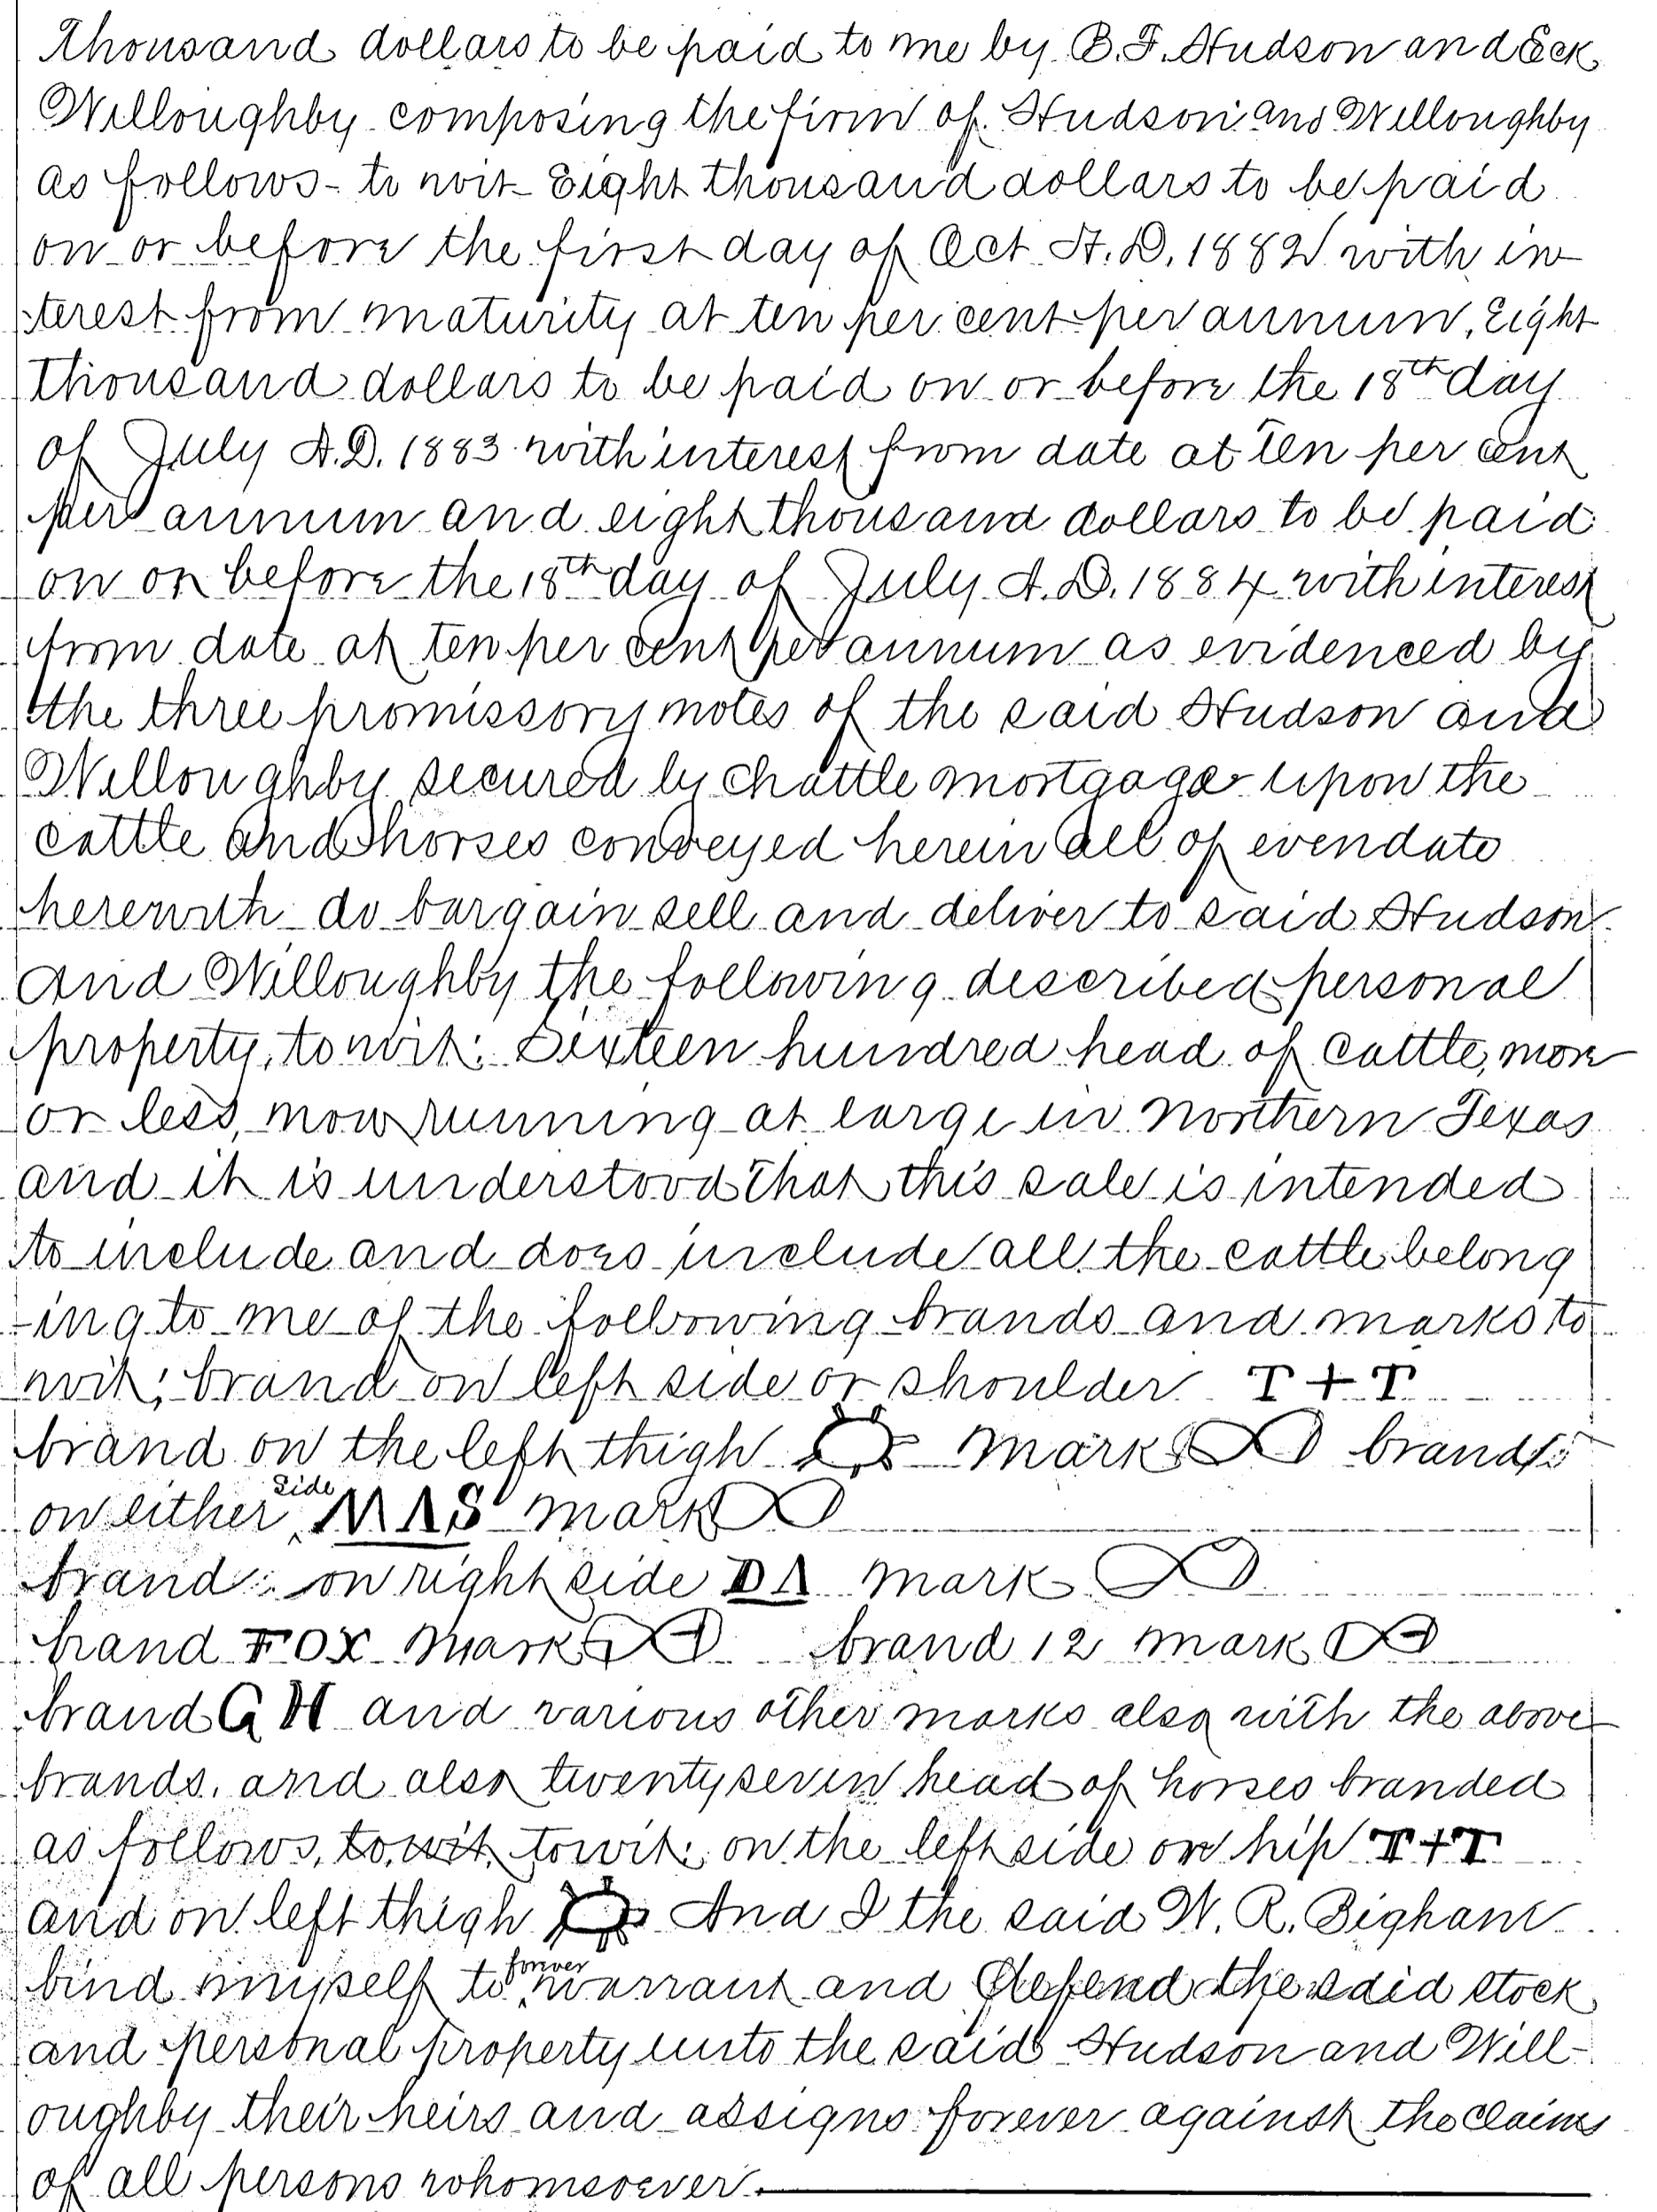 Thousand dollars to be paid to me by B.F. Hudson and Eck
Willoughby composing the firm of Hudson and Willoughby
as follows - to wit Eight thousand dollars to be paid
on or before the first day of Oct A.D. 1882 with in
terest from maturity at ten per cent per annum, Eight
Thousand dollars to be paid on or before the 18th day
of July A.D. 1883 with interest from date at ten per cent
per annum and eight thousand dollars to be paid
on or before the 18th day of July A.D. 1884 with interest
from date at ten per cent per annum as evidenced by
the three promissory notes of the said Hudson and
Willoughby secured by chattle mortgage upon the
cattle and horses conveyed herein all of even date
herewith do bargain sell and deliver to said Hudson
and Willoughby the following described personal
property, to wit: Sixteen hundred head of cattle, more
or less, now running at large in northern Texas
and it is understood that this sale is intended
to include and does include all the cattle belong
-ing to me of the following brands and marks to
wit; brand on left side or shoulder T + T
brand on the left thigh mark brands
on either side MAS mark
brand on right side DA mark
brand FOX mark brand 12 mark
brand G H and various other marks also with the above
brands. and also twenty seven head of horses branded
as follows, to wit, towit: on the left side or hip T+T
and on left thigh And I the said W. R. Bigham
bind myself to forever warrant and defend the said stock
and personal property unto the said Hudson and Will-
oughby their heirs and assigns forever against the claims
of all persons whomsoever.